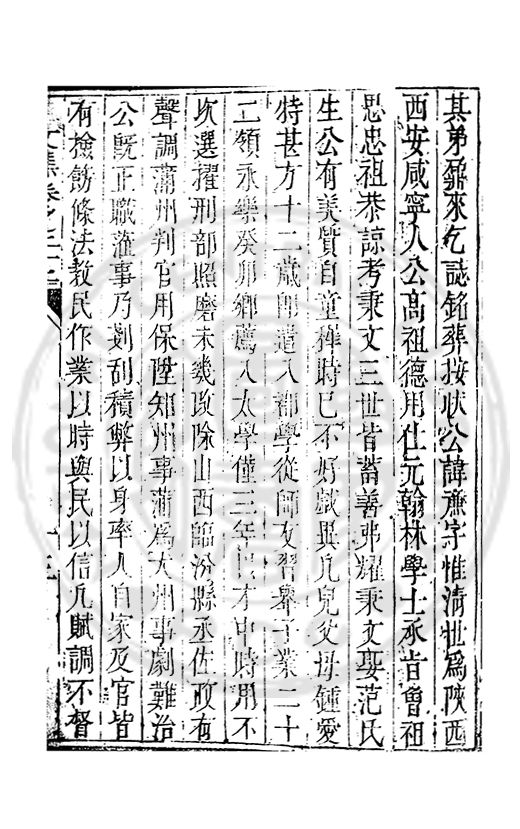 其弟鼐來乞誌銘葬按狀公諱薦字惟清世爲陝西
西安咸寧人公高祖德用仕元翰林學士承旨曾祖
思忠祖恭諒考秉文三世皆蓄善弗耀秉文娶范氏
生公有美質自童稺時已不好戲與凡兒父母鍾愛
特甚方十二歲即遣入郡學從師友習舉子業二十
二領永樂癸卯鄉薦入太學僅三年以才中時用不
次選擢刑部照磨未幾改除山西臨汾縣丞佐政有
聲調蒲州判官用保陞知州事蒲爲大州事劇難治
公旣正職蒞事乃剗刮積弊以身率人自家及官皆
有檢飭條法教民作業以時與民以信凡賦調不督
文集卷之十二